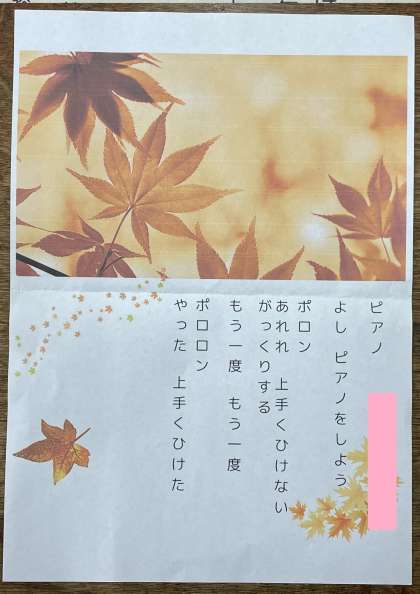 ピアノ
よし ピアノをしよう
ポロン
あれれ 上手くひけない
がっくりする
もう一度 もう一度
ポロロン
やった 上手くひけた